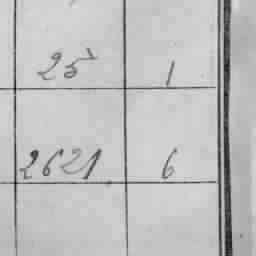 25 1
2621 6